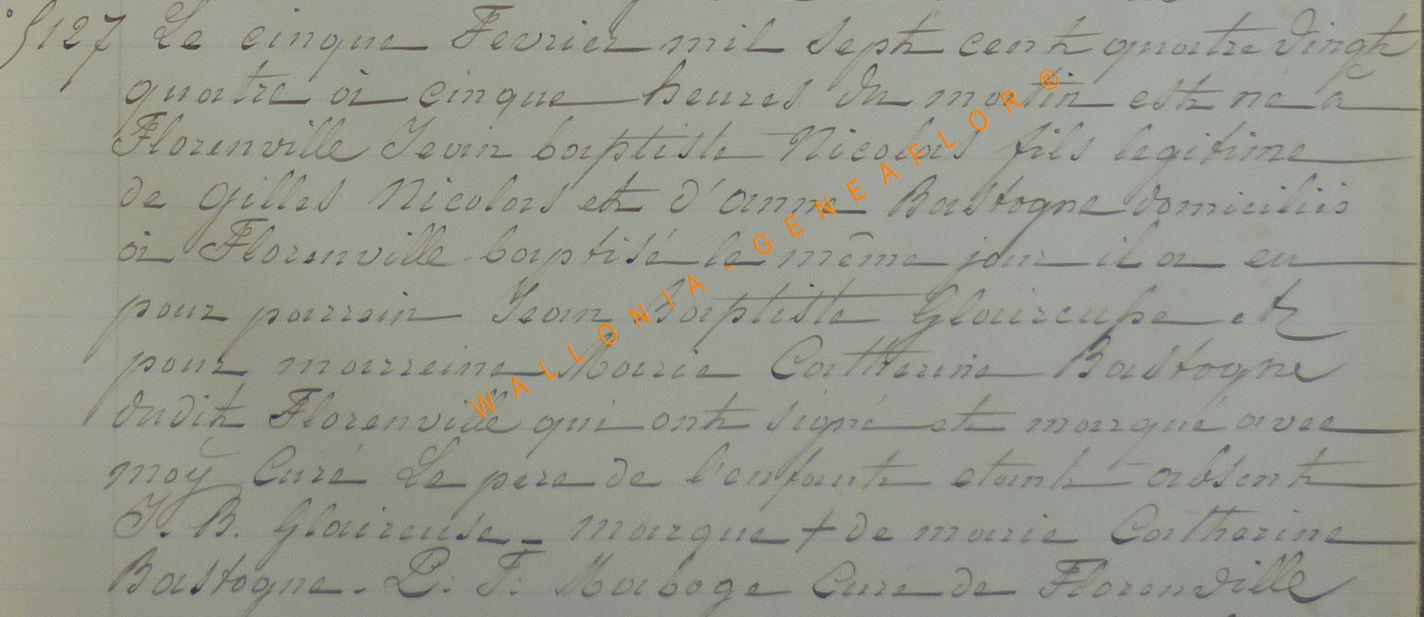 §127 Le cinque Fevrier mil sept cent quatre vingt
quatre à cinque heures du matin est né à
Florenville Jean baptiste Nicolas fils legitime
de Gilles Nicolas et d'anne Bastogne domiciliés
à Florenville baptisé le même jour il a eu
pour parrein Jean Baptiste Glaireuse et
pour marreine Marie Catherine Bastogne
dudit Florenville qui ont signé et marqué avec
moÿ Curé Le pere de l'enfant etant absent
J. B. Glaireuse_ marque + de marie Catherine
Bastogne. P. F. Maboge Curé de Florenville
WALLONIA - GENEAFLOR®